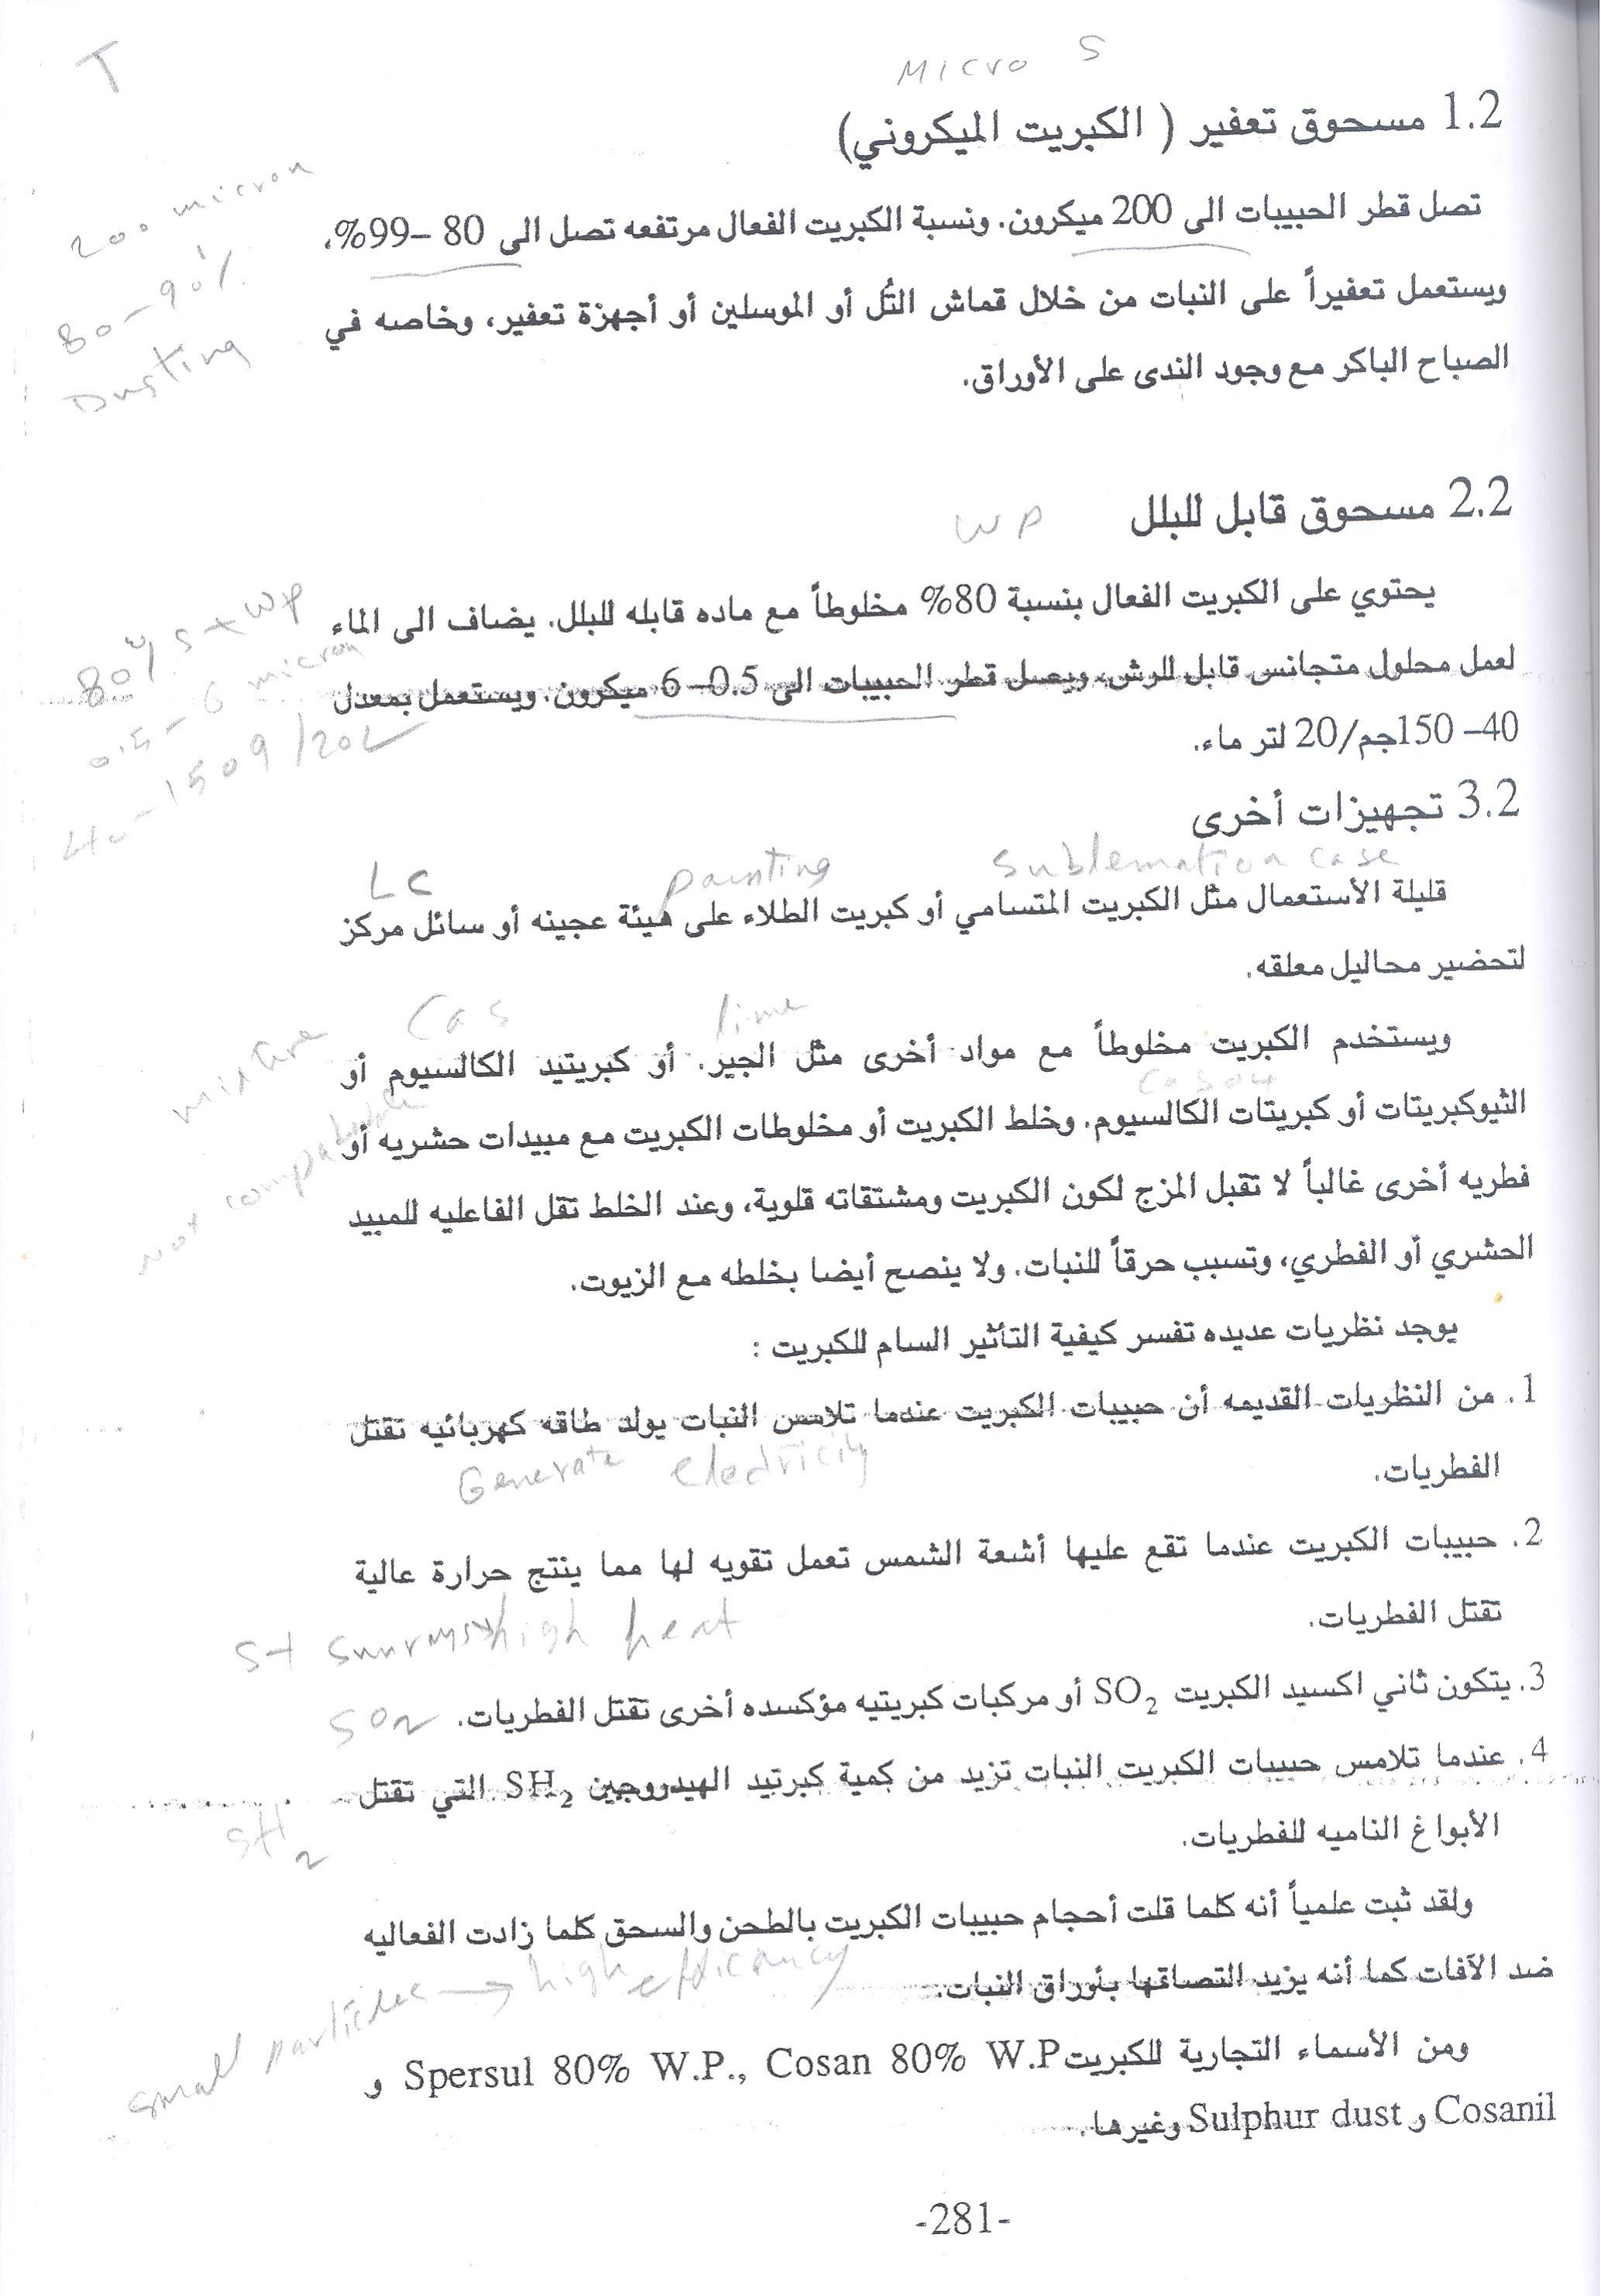 T
Micro S
1.2 مسحوق تعفير ( الكبريت الميكروني)
تصل قطر الحبيبات الى 200 ميكرون. ونسبة الكبريت الفعال مرتفعه تصل الى 80 –99%،
200 micron
80-90%
Dusting
ويستعمل تعفيراً على النبات من خلال قماش التُل أو الموسلين أو أجهزة تعفير، وخاصه في
الصباح الباكر مع وجود الندى على الأوراق.
2.2 مسحوق قابل للبلل
WP
يحتوي على الكبريت الفعال بنسبة 80% مخلوطاً مع ماده قابله للبلل. يضاف الى الماء
80% S + WP
لعمل محلول متجانس قابل للرش، ويصل قطر الحبيبات الى 0.5–6 ميكرون. ويستعمل بمعدل
0.5 - 6 micron
40– 150جم/20 لتر ماء.
40-150g/20L
3.2 تجهيزات أخرى
Sublemation case
painting
LC
قليلة الأستعمال مثل الكبريت المتسامي أو كبريت الطلاء على هيئة عجينه أو سائل مركز
لتحضير محاليل معلقه.
lime
Cas
mixture
ويستخدم الكبريت مخلوطاً مع مواد أخرى مثل الجير. أو كبريتيد الكالسيوم أو
CaSO4
الثيوكبريتات أو كبريتات الكالسيوم. وخلط الكبريت أو مخلوطات الكبريت مع مبيدات حشريه أو
Not
فطريه أخرى غالباً لا تقبل المزج لكون الكبريت ومشتقاته قلوية، وعند الخلط تقل الفاعليه للمبيد
الحشري أو الفطري، وتسبب حرقاً للنبات. ولا ينصح أيضا بخلطه مع الزيوت.
يوجد نظريات عديده تفسر كيفية التأثير السام للكبريت :
1. من النظريات القديمه أن حبيبات الكبريت عندما تلامس النبات يولد طاقه كهربائيه تقتل
الفطريات.
Generate electricity
2. حبيبات الكبريت عندما تقع عليها أشعة الشمس تعمل تقويه لها مما ينتج حرارة عالية
تقتل الفطريات.
S+ sunrays high heat
3. يتكون ثاني اكسيد الكبريت SO2 أو مركبات كبريتيه مؤكسده أخرى تقتل الفطريات.
SO2
4. عندما تلامس حبيبات الكبريت النبات تزيد من كمية كبرتيد الهيدروجين SH2 التي تقتل
SH2
الأبواغ الناميه للفطريات.
ولقد ثبت علمياً أنه كلما قلت أحجام حبيبات الكبريت بالطحن والسحق كلما زادت الفعاليه
ضد الآفات كما أنه يزيد التصاقها بأوراق النبات.
small particles → high efficancy
ومن الأسماء التجارية للكبريت Spersul 80% W.P., Cosan 80% W.P و
Cosanil و Sulphur dust وغيرها.
-281-